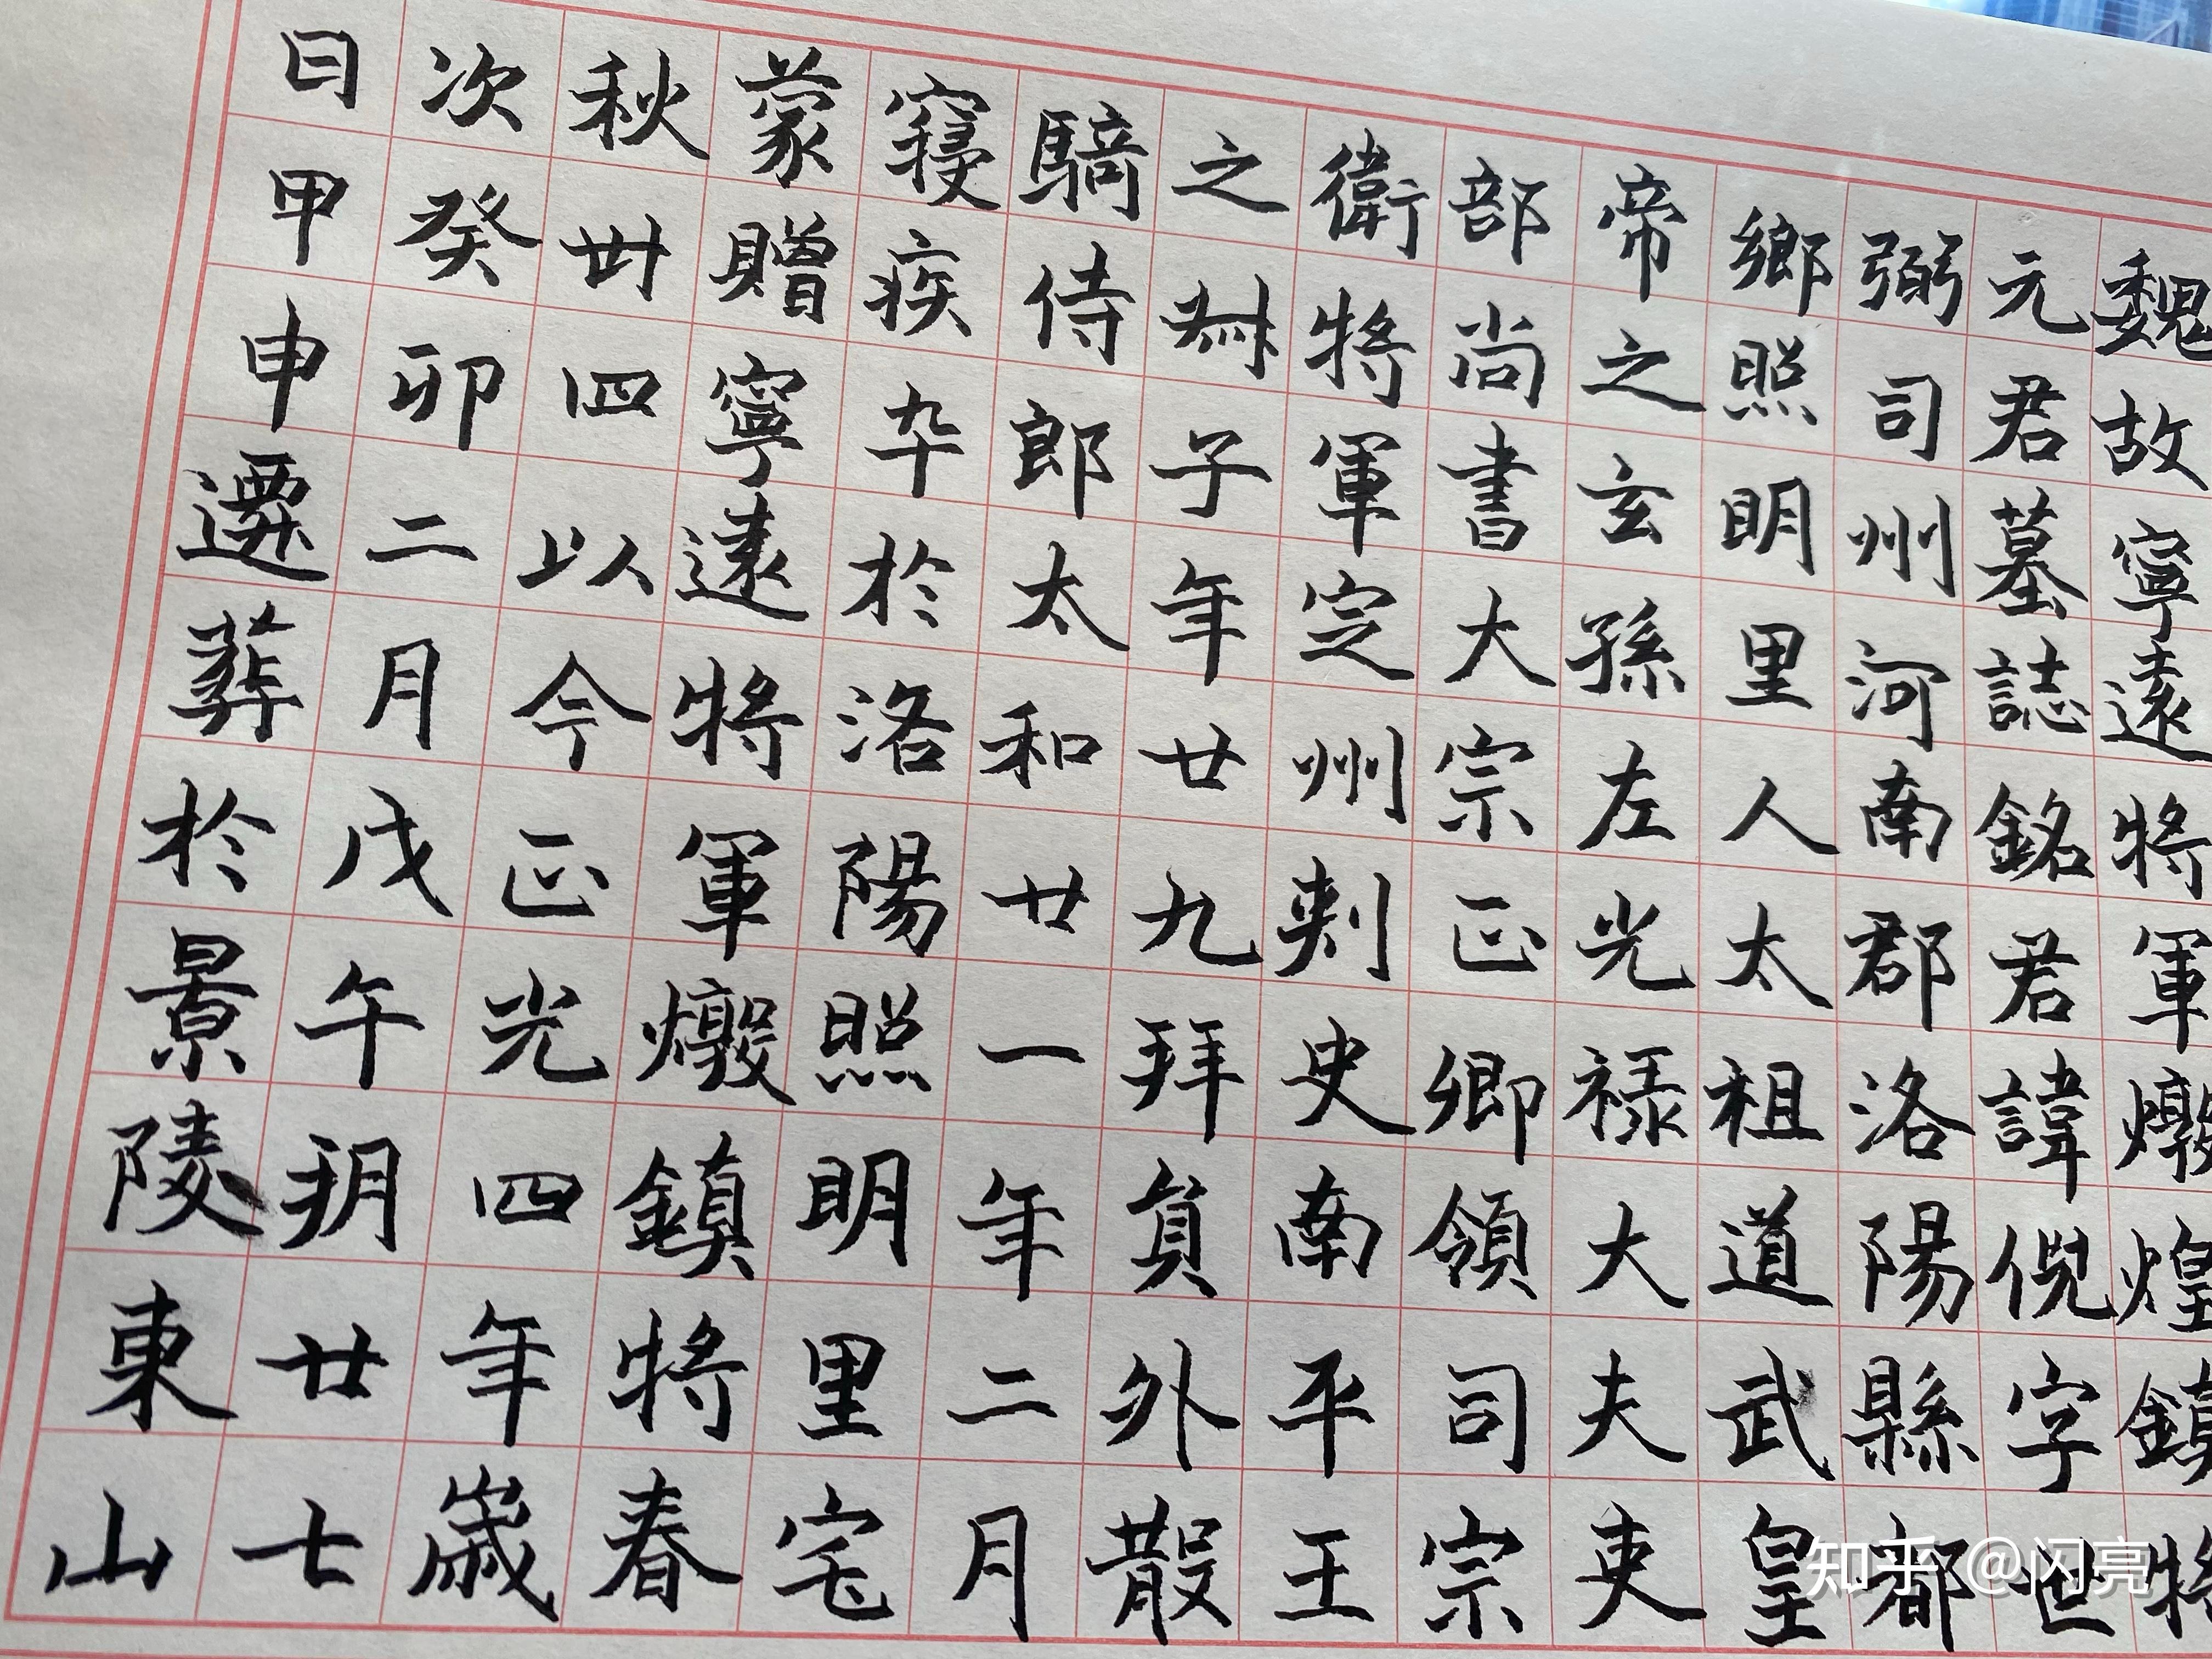 魏故寧遠將軍燉煌鎮將
元君墓誌銘君諱倪字世
弼司州河南郡洛陽縣都
鄉照明里人太祖道武皇
帝之玄孫左光祿大夫吏
部尚書大宗正卿領司宗
衛將軍定州刺史南平王
之叔子年廿九拜員外散
騎侍郎太和廿一年二月
寢疾卒於洛陽照明里宅
蒙贈寧遠將軍燉鎮將春
秋卌四以今正光四年歲
次癸卯二月戊午朔廿七
日甲申遷葬於景陵東山
知乎 @闪亮